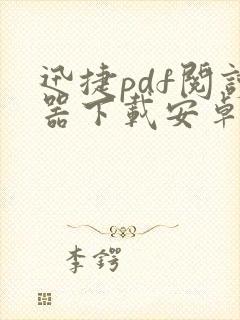 迅捷pdf閱讀
器下載安卓
李鍔